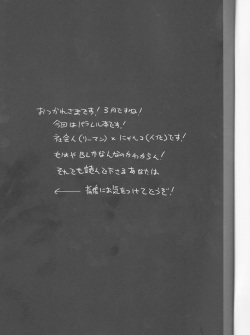 おつかれさまです!3月ですね!
今回はパラレル本です!
社会人(リーマン)×にゃんこ(人化)です!
もはやBLかなんなのかわからん!
それでも読んで下さるあなたは
← 背後にお気をつけてどうぞ!